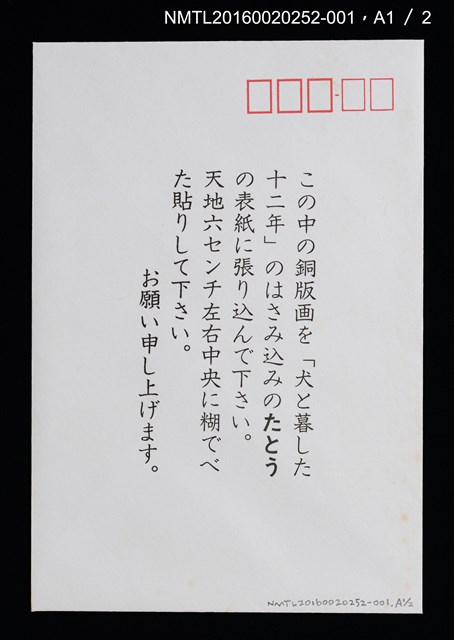 NMTL20160020252-001，A1 / 2
この中の銅版画を「犬と暮した
十二年」のはさみ込みのたとう
の表紙に張り込んで下さい。
天地六センチ左右中央に糊でべ
た貼りして下さい。
お願い申し上げます。
NMTL20160020252-001,A1/2